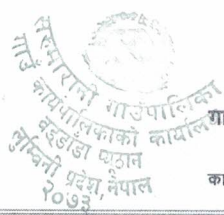 सरुमारानी गाउँपालिका
गाउँ कार्यपालिकाको कार्यालय
वड्डाँडा प्यूठान
लुम्बिनी प्रदेश, नेपाल
२०७३
गा
का